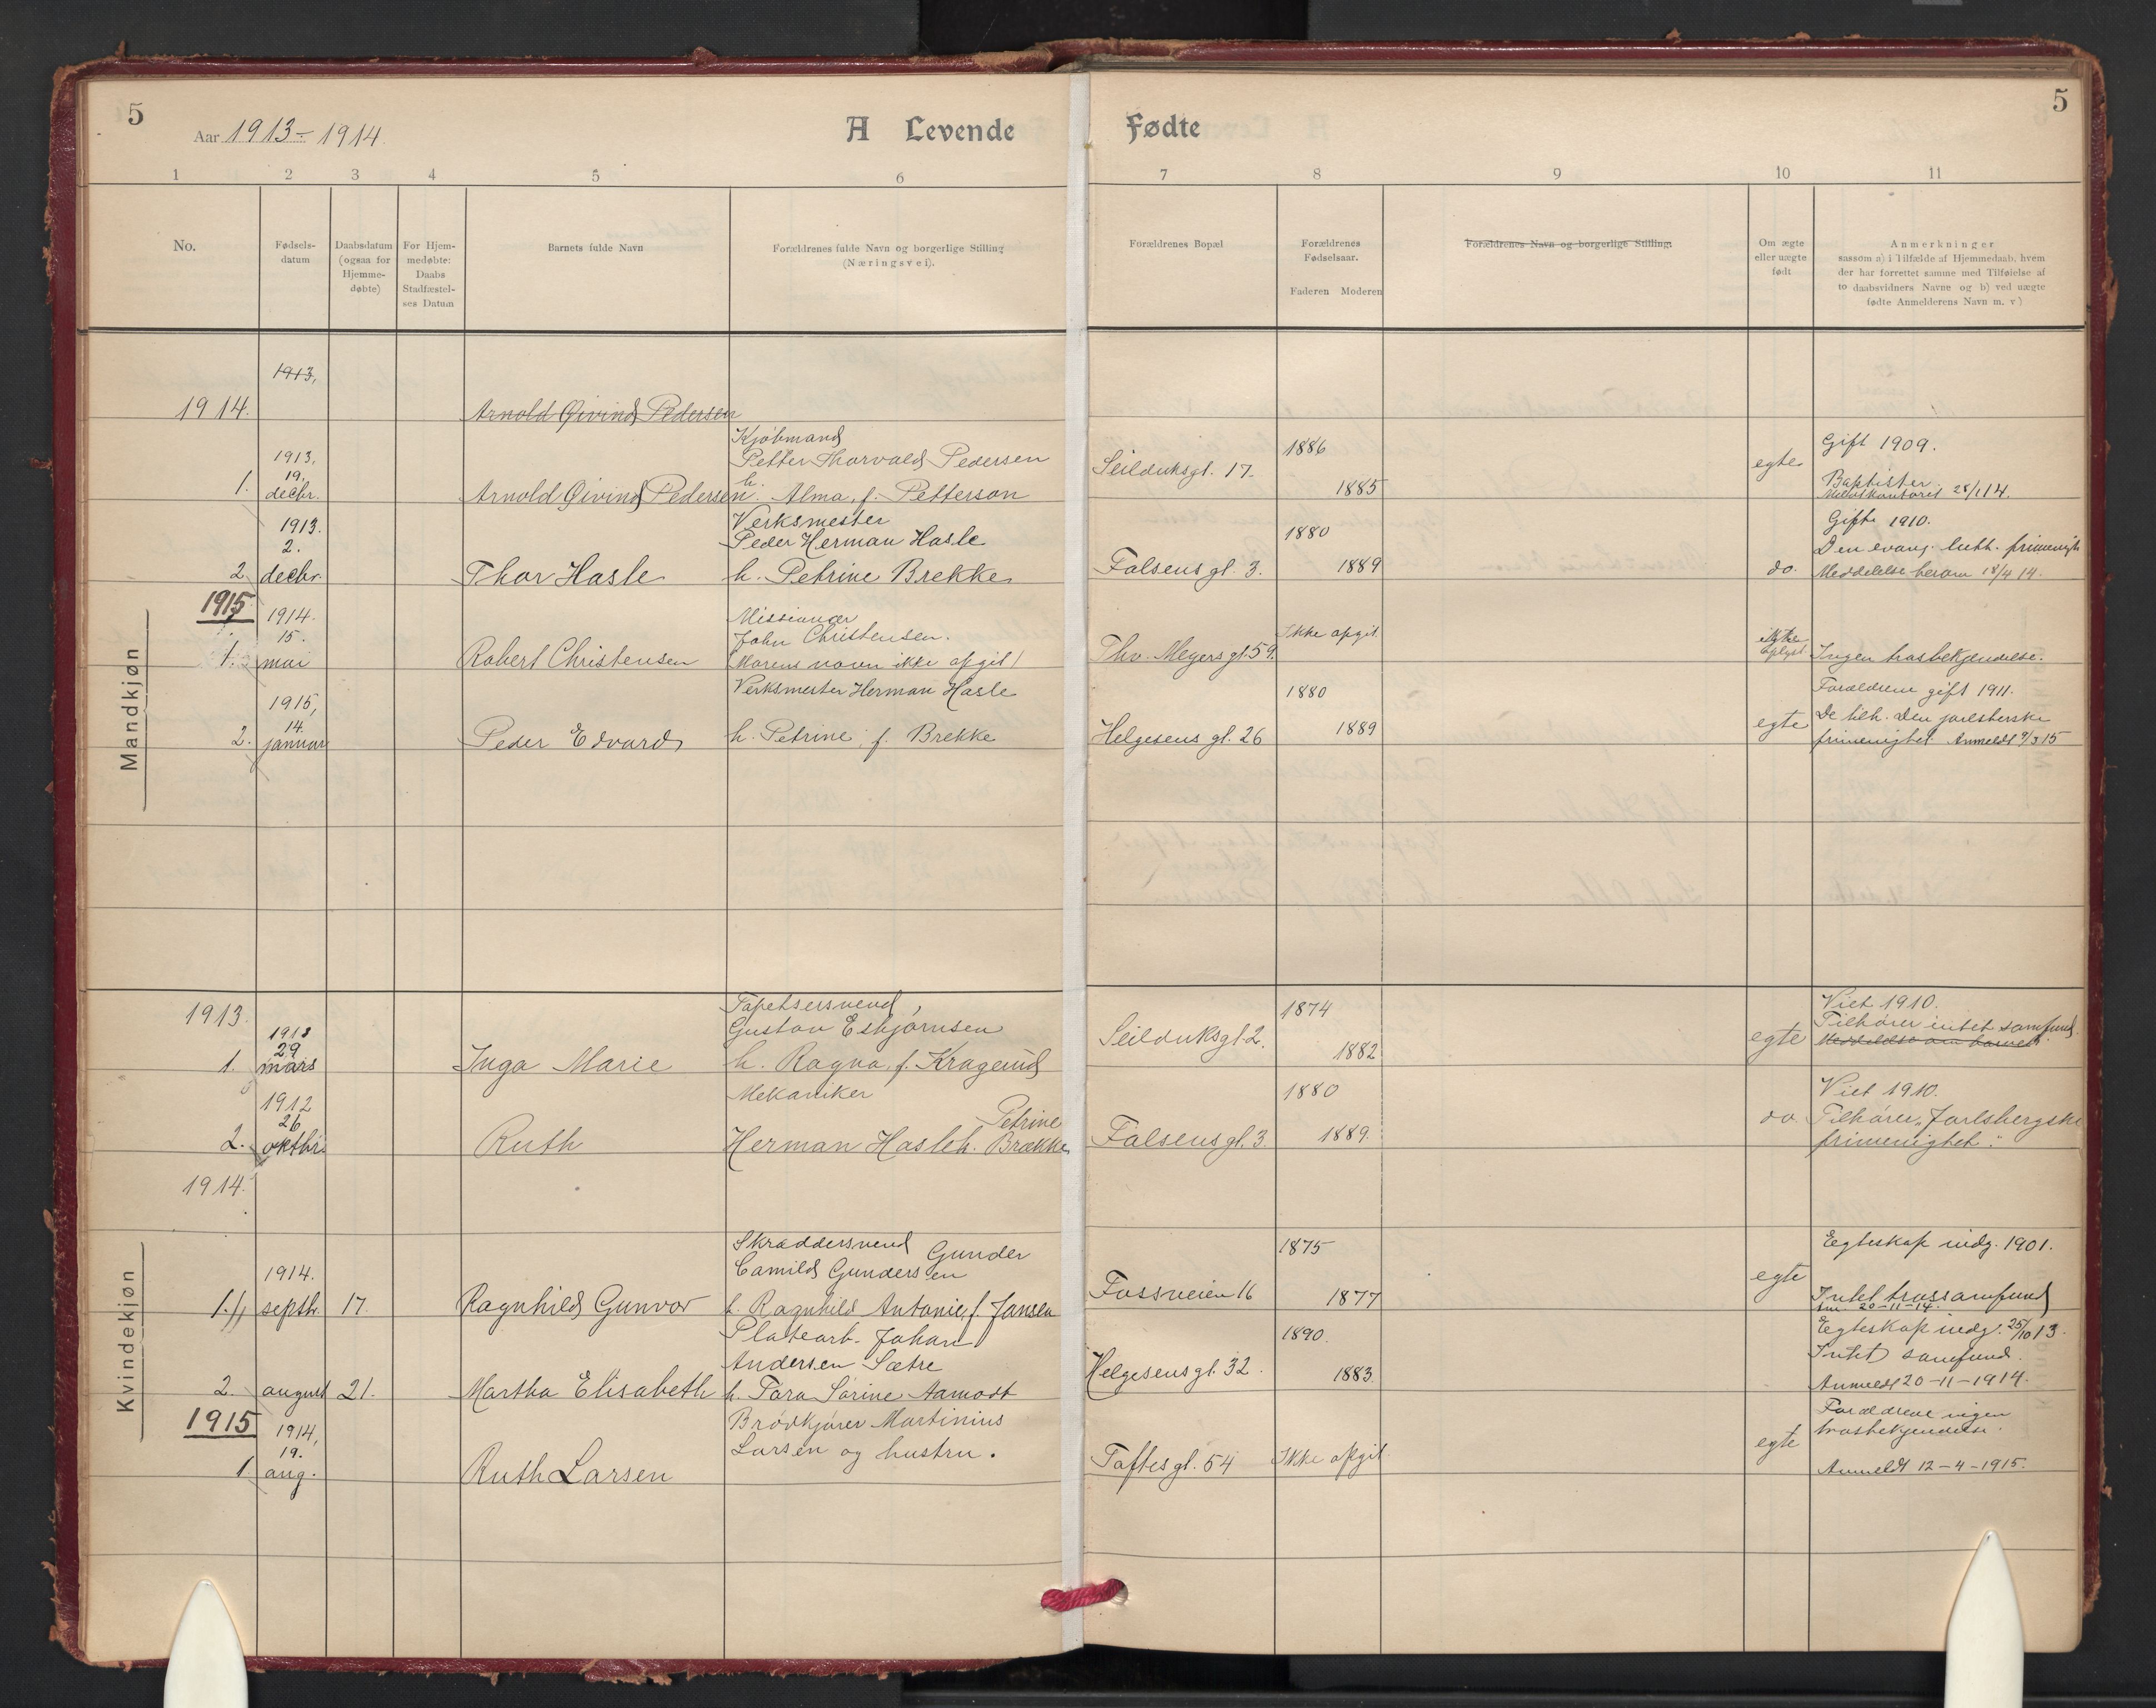 5
Aar 1913-1914.
A Levende Fødte
5
1 2 3 4 5 6 7 8 9 10 11
No.
Fødsels-
datum
Daabsdatum
(ogsaa for
Hjemme-
døbte)
For Hjem-
medøbte:
Daabs
Stadfæstel-
ses Datum
Barnets fulde Navn
Forældrenes fulde Navn og borgerlige Stilling
(Næringsvei).
Forældrenes Bopæl
Forældrenes
Fødselsaar.
Faderen Moderen
Forældrenes Navn og borgerlige Stilling.
Om ægte
eller uægte
født
Anmerkninger
sassom a) i Tilfælde af Hjemmedaab, hvem
der har forrettet samme med Tilføielse af
to daabsvidners Navne og b) ved uægte
fødte Anmelderens Navn m. v)
Mandkjøn
1913,
1914.
Arnold Øivind Pedersen
1.
1913,
19.
decbr.
Arnold Øivind Pedersen
Kjøbmand
Petter Thorvald Pedersen
h. Alma, f. Petterson
Seilduksgt. 17.
1886
1885
egte
Gift 1909.
Baptister.
28/1 14.
2
1913.
2.
decbr.
Thor Hasle
Verksmester
Peder Herman Hasle
h. Petrine Brekke
Falsens gt. 3.
1880
1889
do.
Gift 1910.
Den evang. luth. frimenigh
Meddelelse herom 18/4 14.
1915
1.
1914.
15.
mai
Robert Christensen
Missionær
John Christensen.
(Morens navn ikke opgit)
Thv. Meyers gt. 59.
Ikke opgit
ikke
oplyst
Ingen trosbekjendelse.
2.
1915,
14.
januar
Peder Edvard
Verksmester Herman Hasle
h. Petrine, f. Brekke
Helgesens gt. 26
1880
1889
egte
Forældrene gift 1911.
De tilh. Den jarlsberske
frimenighet. Anmeldt 9/3 15
Kvindekjøn
1913.
1.
1913
29
mars
Inga Marie
Tapetsersvend,
Gustav Esbjørnsen
h. Ragna, f. Kragerud
Seilduksgt 2.
1874
1882
egte
Viet 1910.
Tilhører intet samfund.
Meddeldes om barnet.
2.
1912
26
oktbr.
Ruth
Mekaniker
Petrine
Herman Hasle h. Brække
Falsens gt. 3.
1880
1889.
do.
Viet 1910.
Tilhører "Jarlsbergske
frimenighet".
1914.
1.
1914.
septbr. 17.
Ragnhild Gunvor
Skræddersvend Gunder
Camild Gundersen
h. Ragnhild Antonie, f. Jansen
Fossveien 16
1875
1877
egte
Egteskap indg. 1901.
Intet trossamfund
Anm. 20-11-14.
2.
august 21.
Martha Elisabeth
Platearb. Johan
Andersen Sætre
h. Tora Sørine Aamodt
Helgesens gt. 32.
1890.
1883.
Egteskap indg. 25/10 13.
Intet samfund.
Anmeldt 20-11-1914.
1915
1.
1914,
19.
aug.
Ruth Larsen
Brødkjører Martinius
Larsen og hustru.
Toftes gt. 54
Ikke opgit
egte
Forældrene ingen
trosbekjendelse.
Anmeldt 12-4-1915.